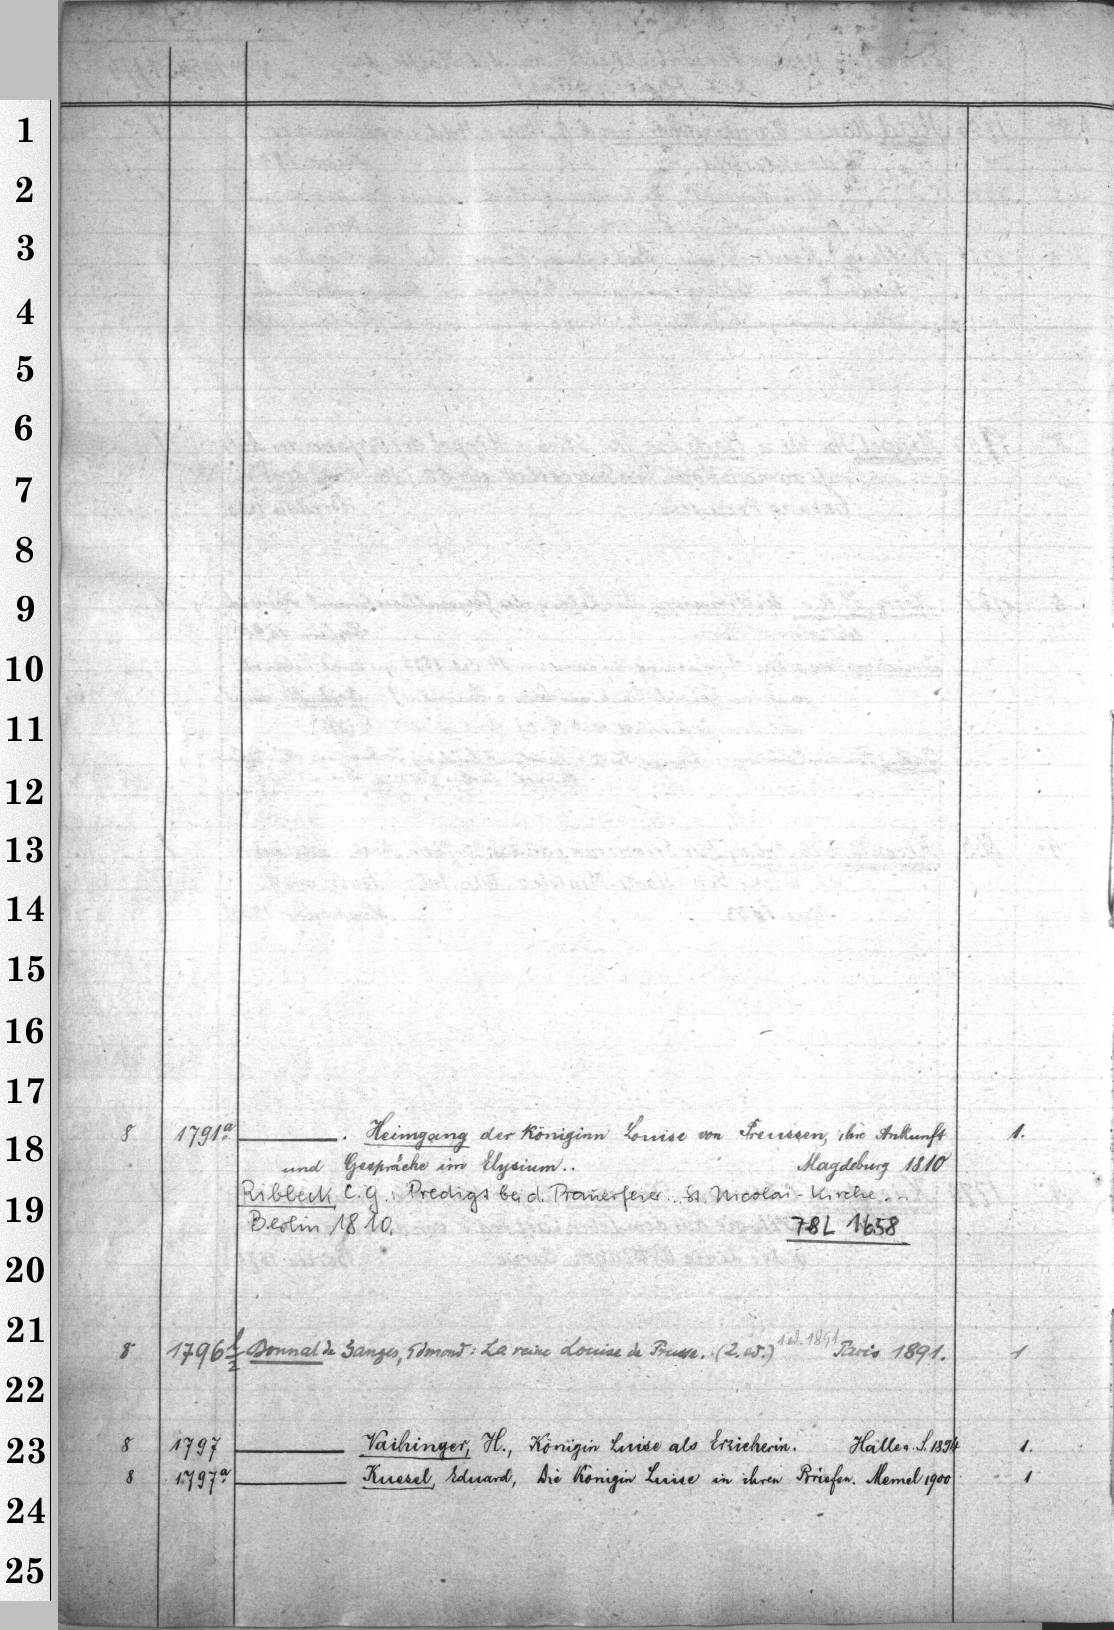 1
2
3
4
5
6
7
8
9
10
11
12
13
14
15
16
17
18
19
20
21
22
23
24
25
8 1791a . Heimgang der Königinn Louise von Preussen, ihre Ankunft 1.
und Gespräche im Elysium.. Magdeburg 1810
Ribbeck C.G.: Predigt bei d. Trauerfeier.. Nicolai-Kirche...
Berlin 1810. 78L 1658
8 1796 Bonnal de Ganges, Edmond: La reine Louise de Prusse. (2. ed.) 1 ed. 1891 Paris 1891. 1
8 1797 Vaihinger, H., Königin Luise als Erzieherin. Halle a. S. 1894 1.
8 1797a Kuesel, Eduard, Die Königin Luise in ihren Briefen. Memel 1900 1